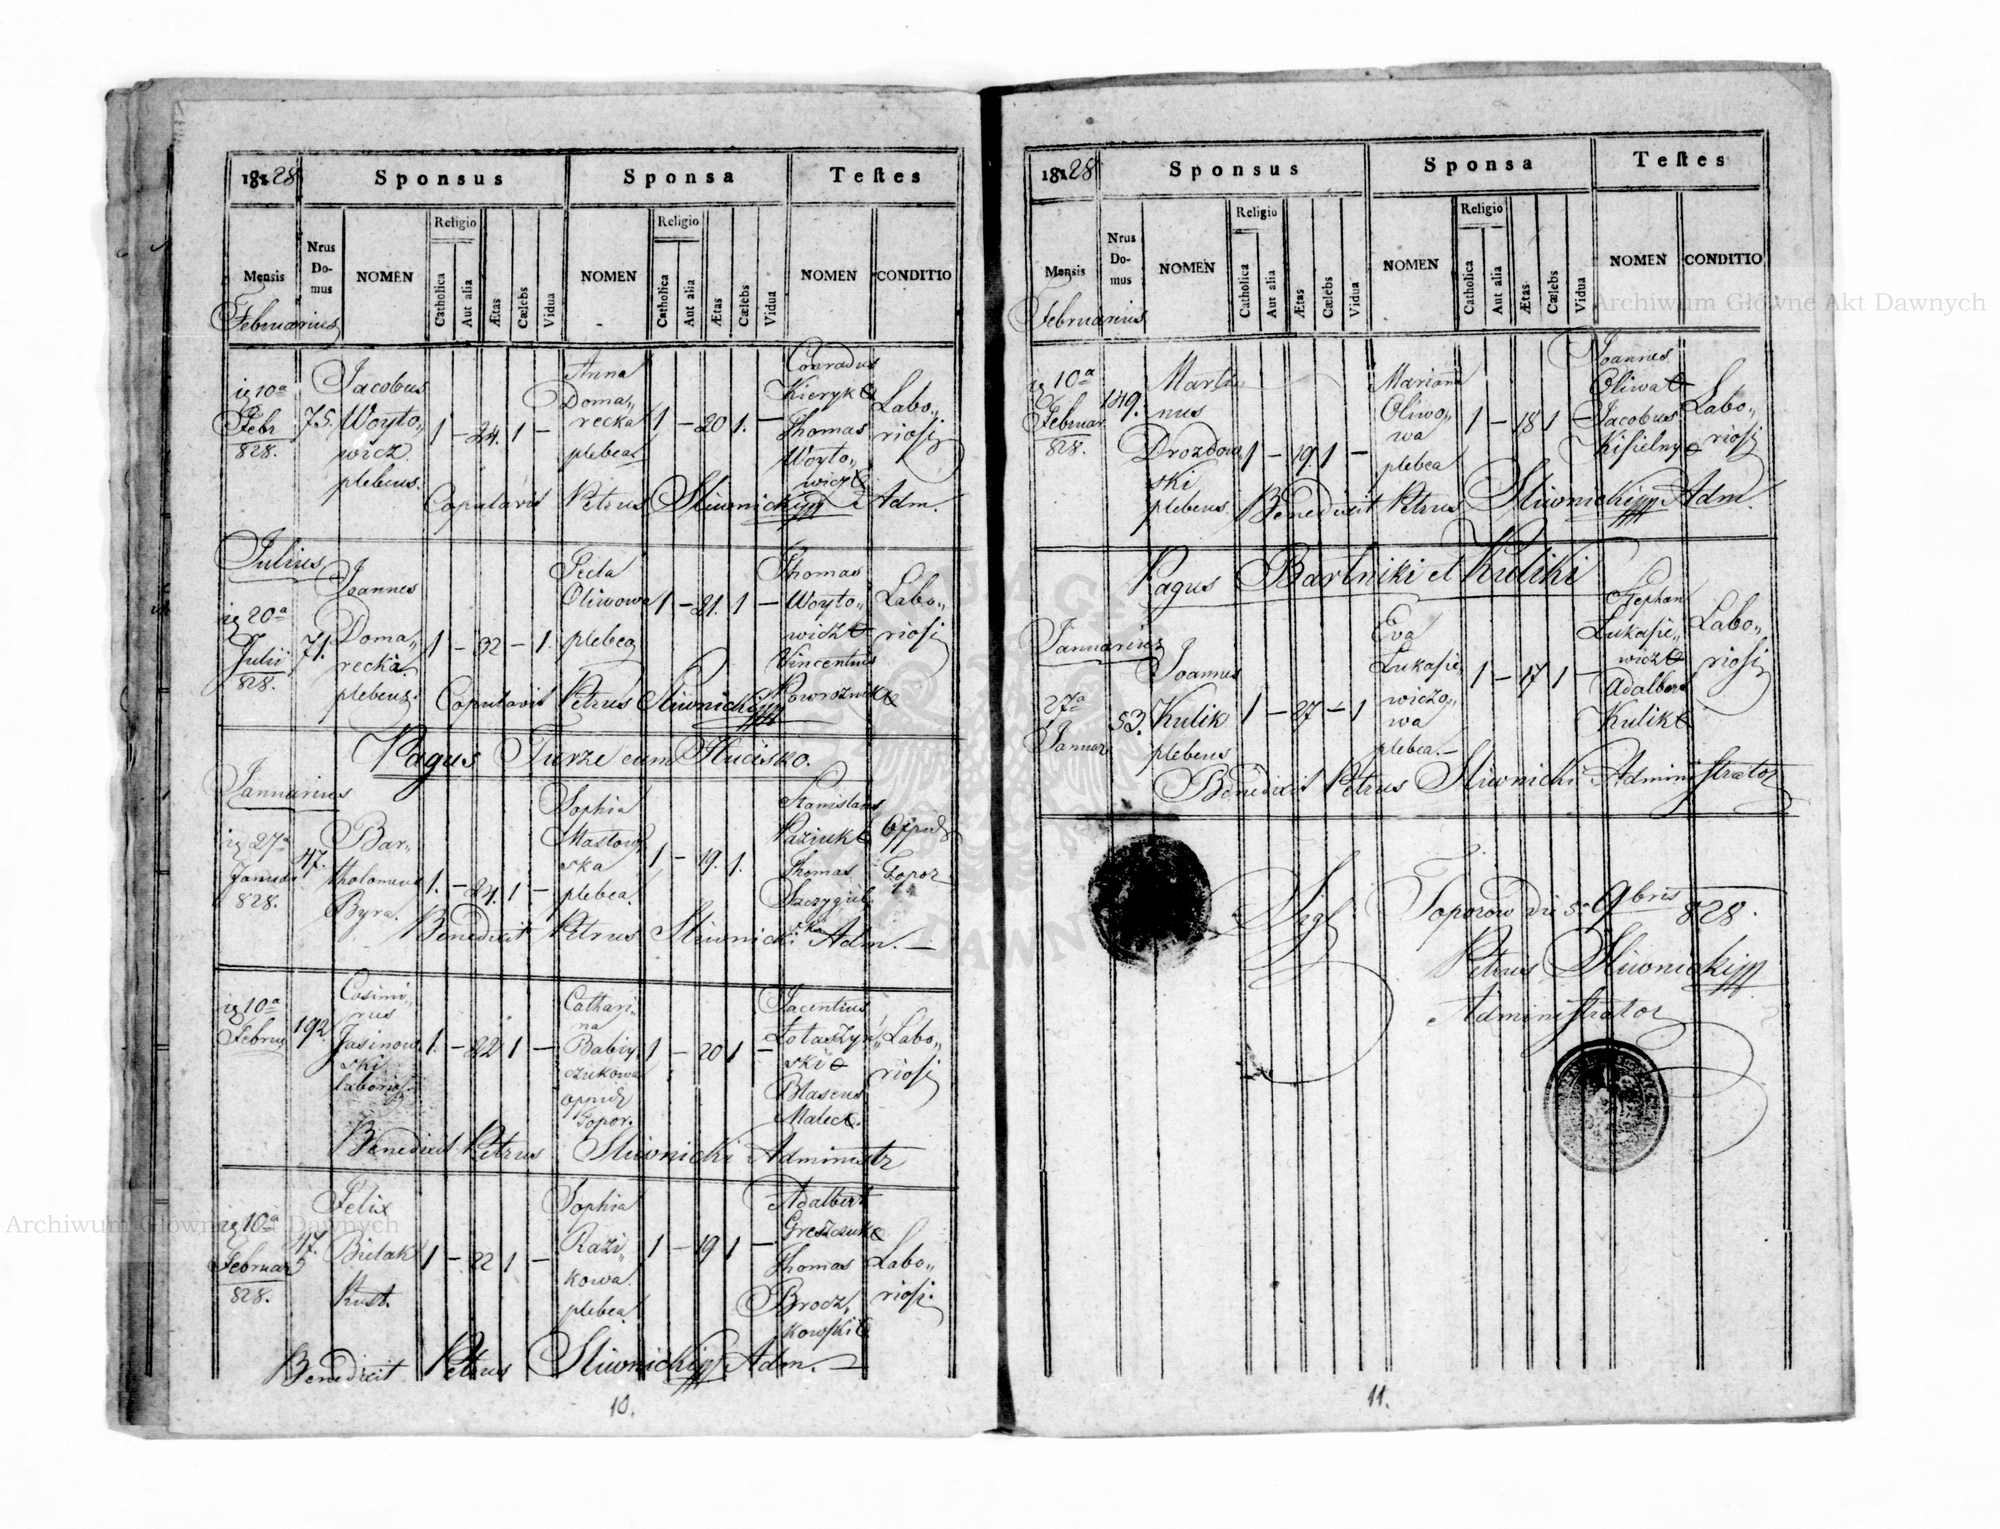 1828
Sponsus
Sponsa
Teſtes
Mensis
Nrus Do-mus
NOMEN
Religio
Catholica
Aut alia
Ætas
Cælebs
Vidua
NOMEN
Religio
Catholica
Aut alia
Ætas
Cælebs
Vidua
NOMEN
CONDITIO
Februarius
10a
Febr
828.
75.
Jacobus
Woyto„
wicz
plebeus.
1 – 24. 1 –
Anna
Doma„
recka
plebea
1 – 20 1. –
Conradus
Kieryk
Thomas
Woyto„
wicz
Labo„
riosi
Copulavit Petrus Sliwnicki Adm.
Julius
20a
Julii
828.
71.
Joannes
Doma„
recki
plebeus
1 – 32 – 1.
Oliwowa
plebea
1 – 21. 1 –
Thomas
Woyto„
wicz
Vincentius
Powroznik
Labo„
riosi
Copulavit Petrus Sliwnicki
Pagus Turze cum Hucisko.
Januarius
27a
828.
47.
Bar„
tholomeus
Byra.
1. – 24. 1 –
Sophia
Mastow„
ska
plebea.
1 – 19. 1.
Stanislaus
Paziuk
Thomas
Topor
Benedixit Petrus Sliwnicki Adm. –
10a
192.
Casimi„
rus
Jasinow
ski
1. – 22 1 –
Cathari„
na
Babiy„
czukowa
Topor.
1 – 20 1 –
Jacentius
Lotaszyn„
ski
Blasius
Malec
Labo„
riosi
Benedixit Petrus Sliwnicki Administr
10a
Februar
828.
47.
Felix
Bielak
1 – 22 1 –
Sophia
Razi„
kowa.
plebea.
1 – 19 1 –
Adalbert
Greszczuk
Thomas
Brocz„
kowski
Labo„
riosi.
Benedixit Petrus Sliwnicki Adm. –
10.
1828
Sponsus
Sponsa
Teſtes
Mensis
Nrus Do-mus
NOMEN
Religio
Catholica
Aut alia
Ætas
Cælebs
Vidua
NOMEN
Religio
Catholica
Aut alia
Ætas
Cælebs
Vidua
NOMEN
CONDITIO
Archiwum Główne Akt Dawnych
Februarius
10a
Februar.
828.
149.
Marti
nus
Drozdow
ski
plebeus.
1 – 19. 1 –
Marianna
Oliwo„
wa
plebea
1 – 18 1
Joannes
Oliwa
Jacobus
Kisielny
Labo„
riosi
Benedixit Petrus Sliwnicki Adm.
Pagus Bartniki et Kuliki
Januarius
27a
Januar
53.
Joannes
Kulik
plebeus
1 – 27 – 1
Eva
Lukasie„
wiczo„
wa
plebea. –
1 – 17 1 –
Stephan
Lukasie„
wicz
Adalbert
Kulik
Labo„
riosi
Benedixit Petrus Sliwnicki Administrator
Toporow die 5a 9bris 828.
Petrus Sliwnicki
Administrator
11.
Archiwum Główne Akt Dawnych